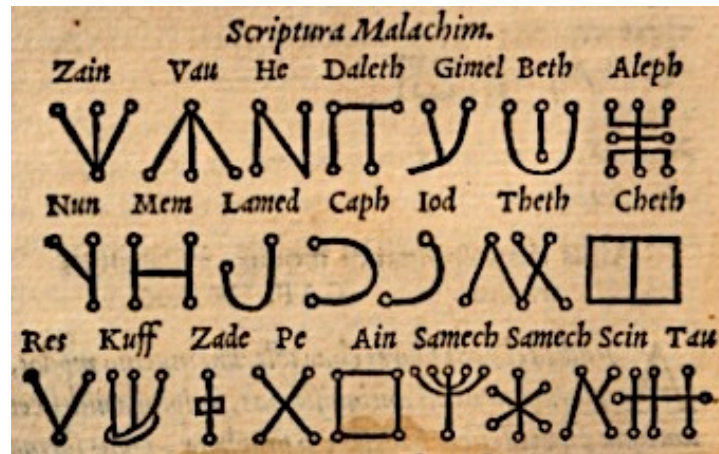 Scriptura Malachim.
Zain Vau He Daleth Gimel Beth Aleph
Nun Mem Lamed Caph Iod Theth Cheth
Res Kuff Zade Pe Ain Samech Samech Scin Tau